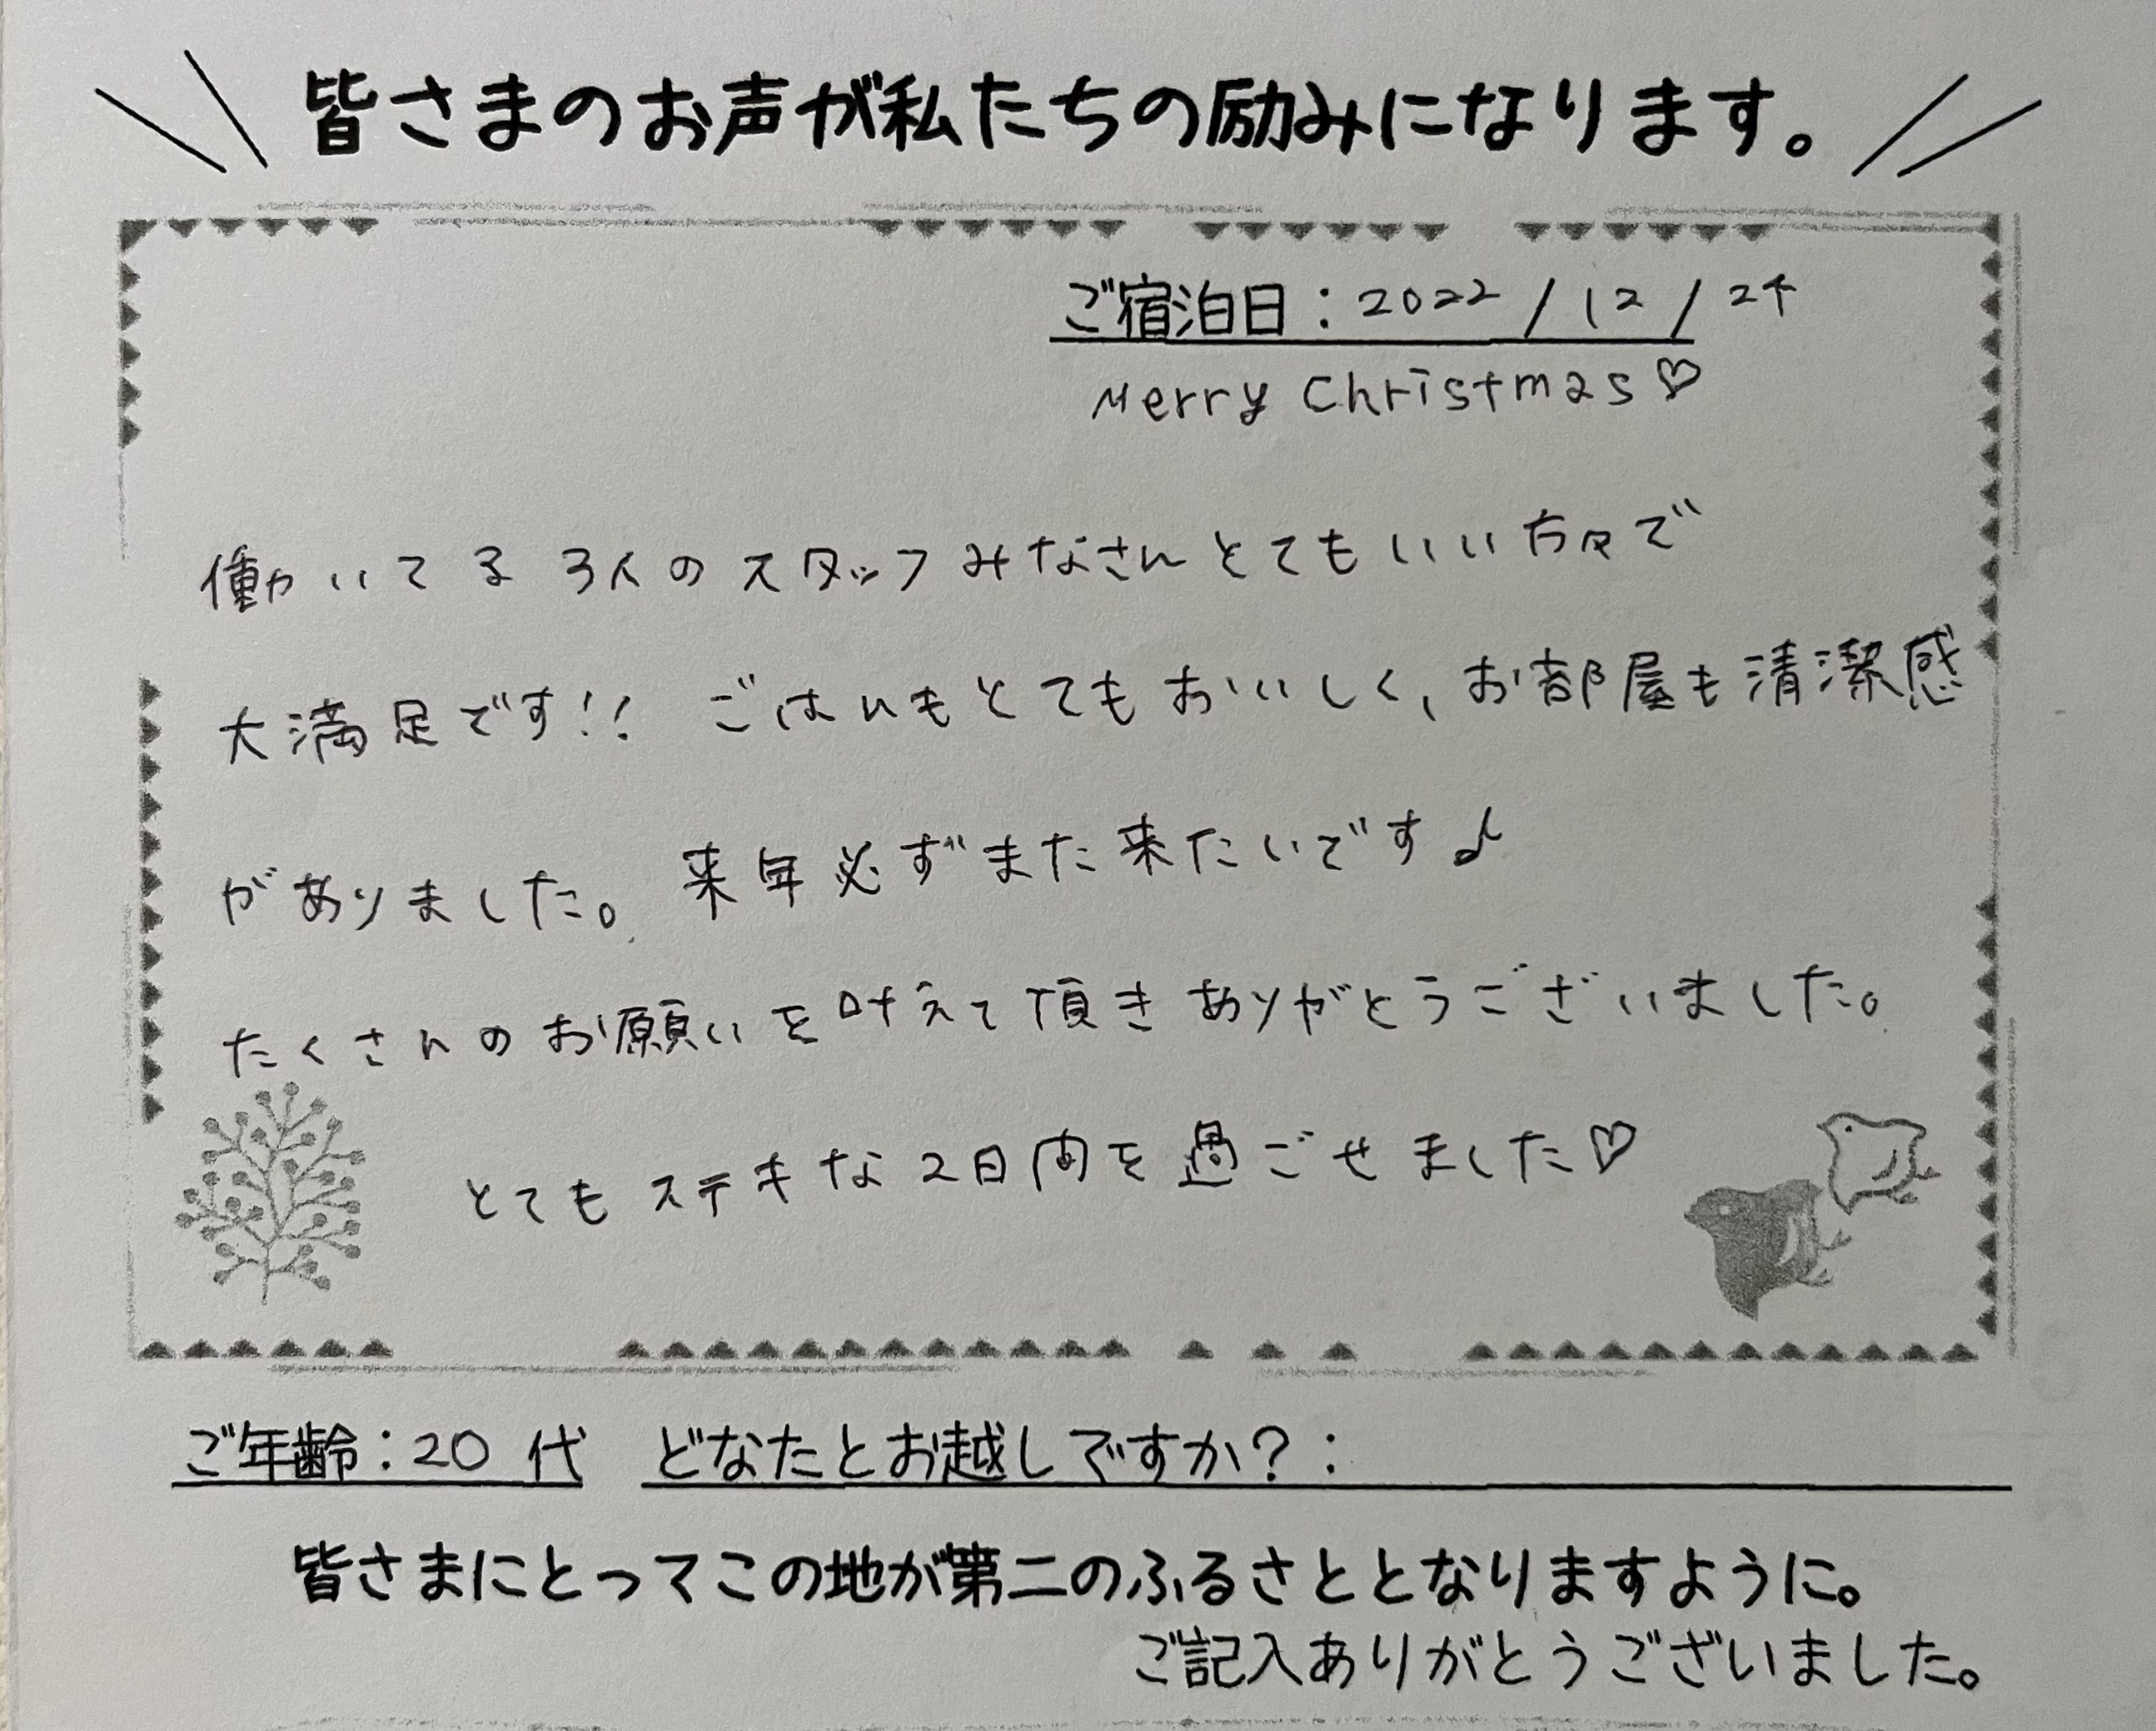 皆さまのお声が私たちの励みになります。
ご宿泊日：2022/12/24
Merry Christmas♡
働いてる3人のスタッフみなさんとてもいい方々で
大満足です!! ごはんもとてもおいしく、お部屋も清潔感
がありました。来年必ずまた来たいです♪
たくさんのお願いを叶えて頂きありがとうございました。
とてもステキな2日間を過ごせました♡
ご年齢：20代 どなたとお越しですか？：
皆さまにとってこの地が第二のふるさととなりますように。
ご記入ありがとうございました。